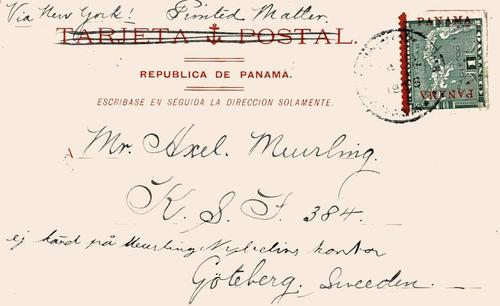 Via New York! Printed Matter.
TARJETA POSTAL.
PANAMA
1
PANAMA
REPUBLICA DE PANAMÁ.
ESCRIBASE EN SEGUIDA LA DIRECCION SOLAMENTE.
A Mr. Axel Meurling.
K. S. F. 384.
ej känd på Meurling kontor
Göteberg. Sweeden.